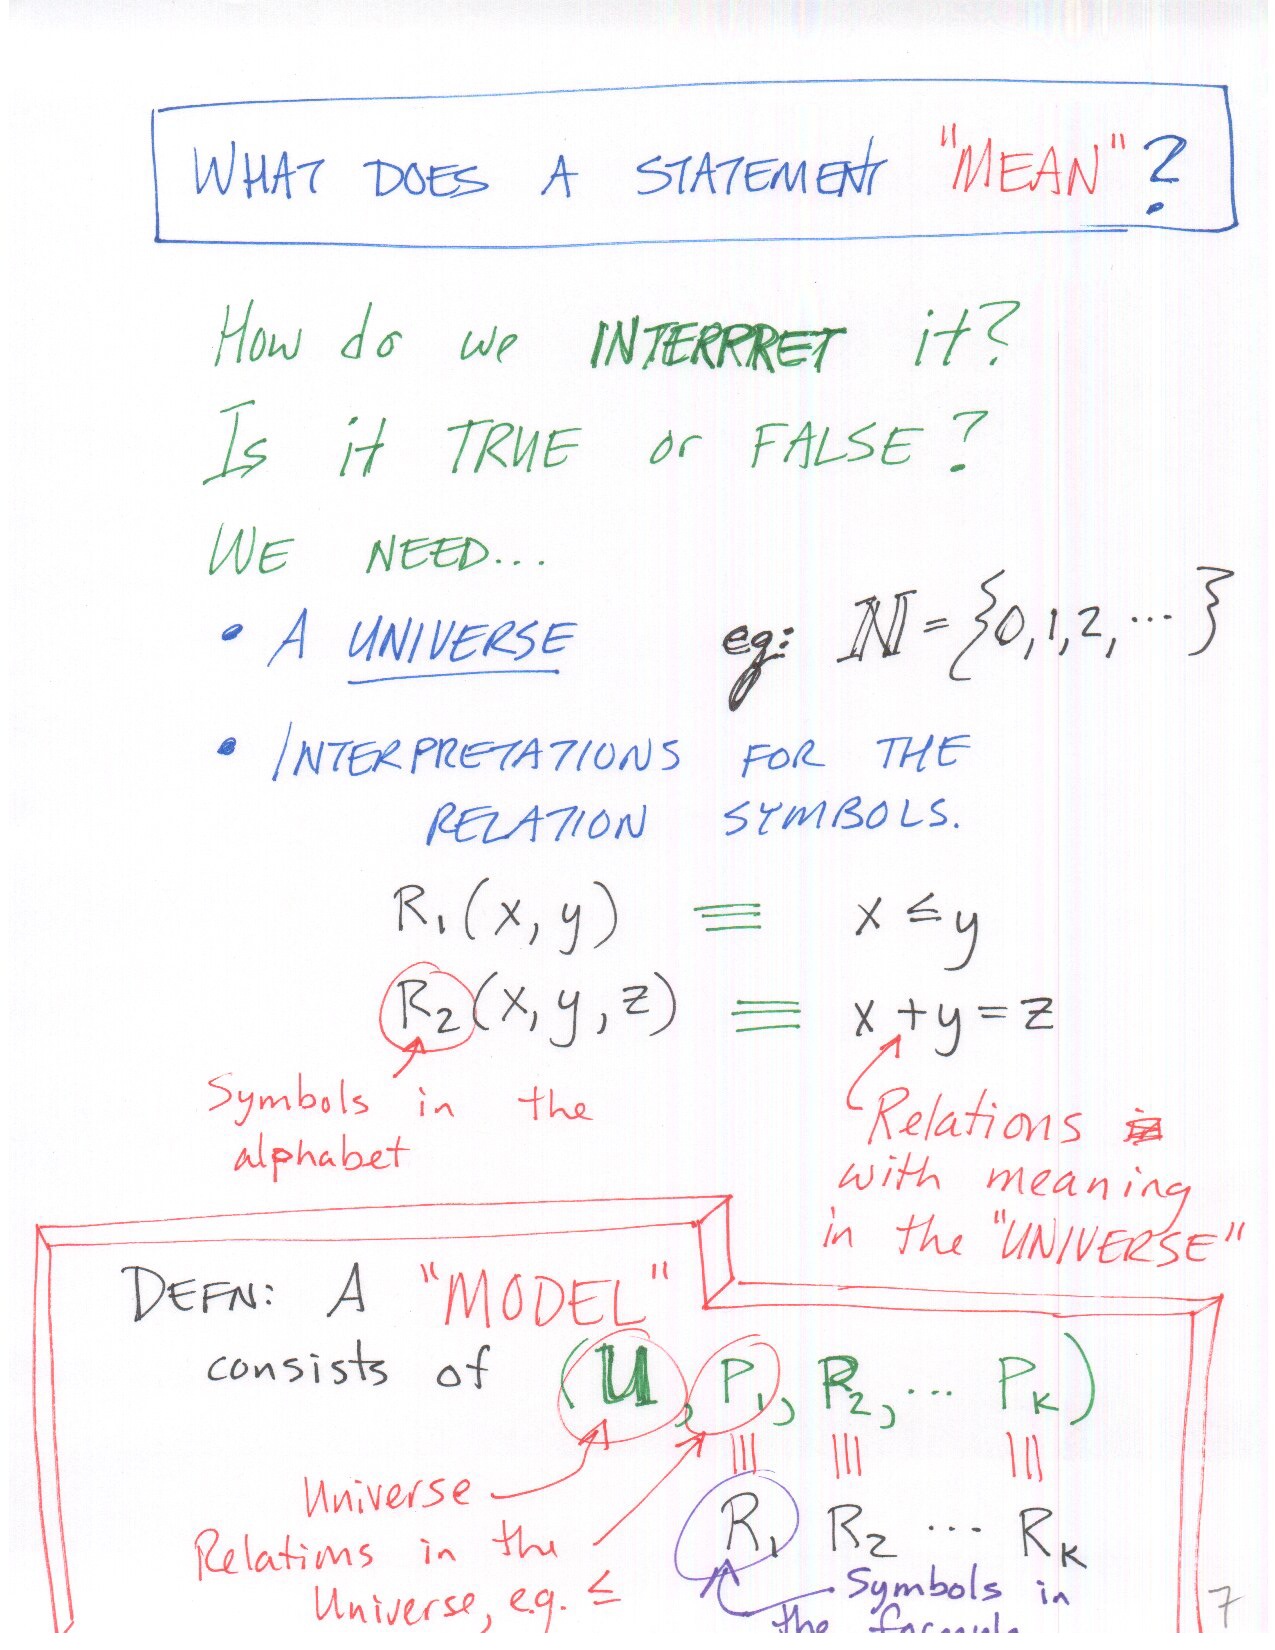 WHAT DOES A STATEMENT "MEAN"?
How do we INTERRRET it?
Is it TRUE or FALSE?
WE NEED...
• A UNIVERSE eg: ℕ = {0,1,2, ... }
• INTERPRETATIONS FOR THE
RELATION SYMBOLS.
R₁(x,y) ≡ x ≤ y
R₂(x,y,z) ≡ x+y=z
Symbols in the
alphabet
Relations
with meaning
in the "UNIVERSE"
DEFN: A "MODEL"
consists of (U, P₁, P₂, ... Pₖ)
||| ||| |||
R₁ R₂ ... Rₖ
Universe
Relations in the
Universe, e.g. ≤
Symbols in
the formula
7